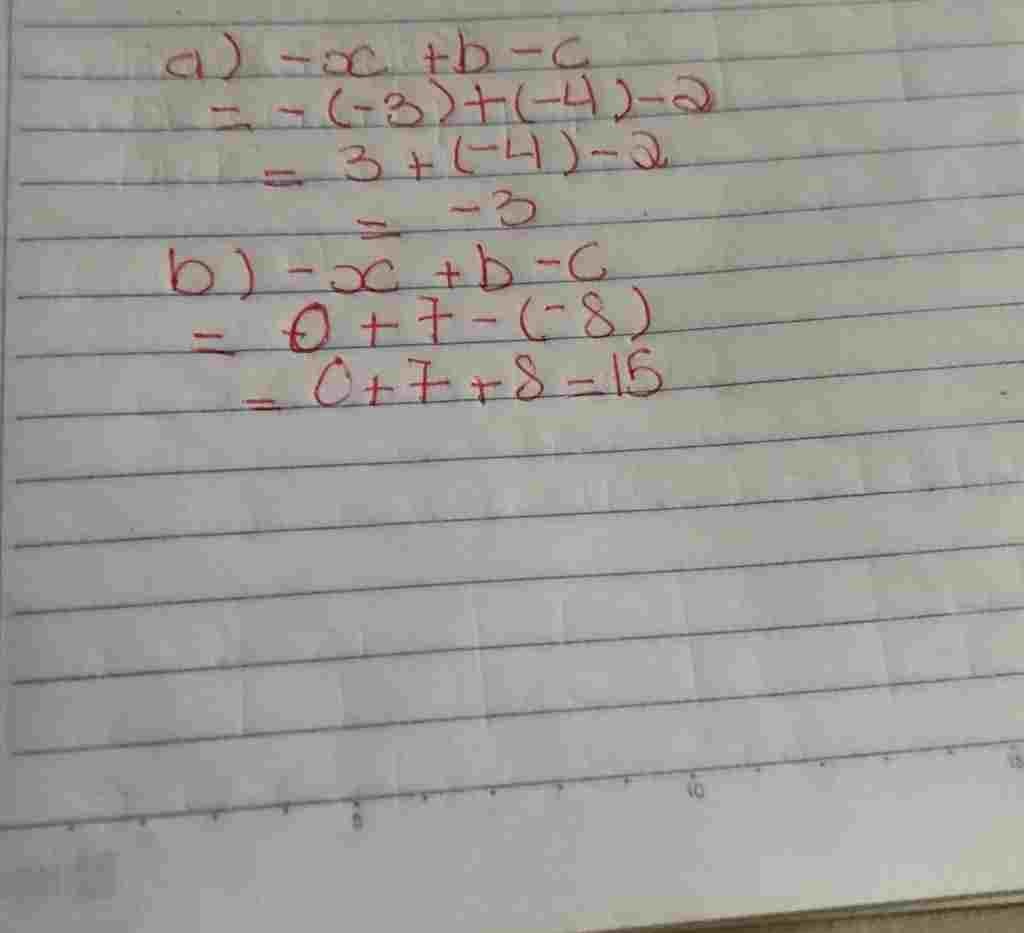 a) -x + b - c
= - (-3) + (-4) - 2
= 3 + (-4) - 2
= -3
b) -x + b - c
= 0 + 7 - (-8)
= 0 + 7 + 8 = 15
10